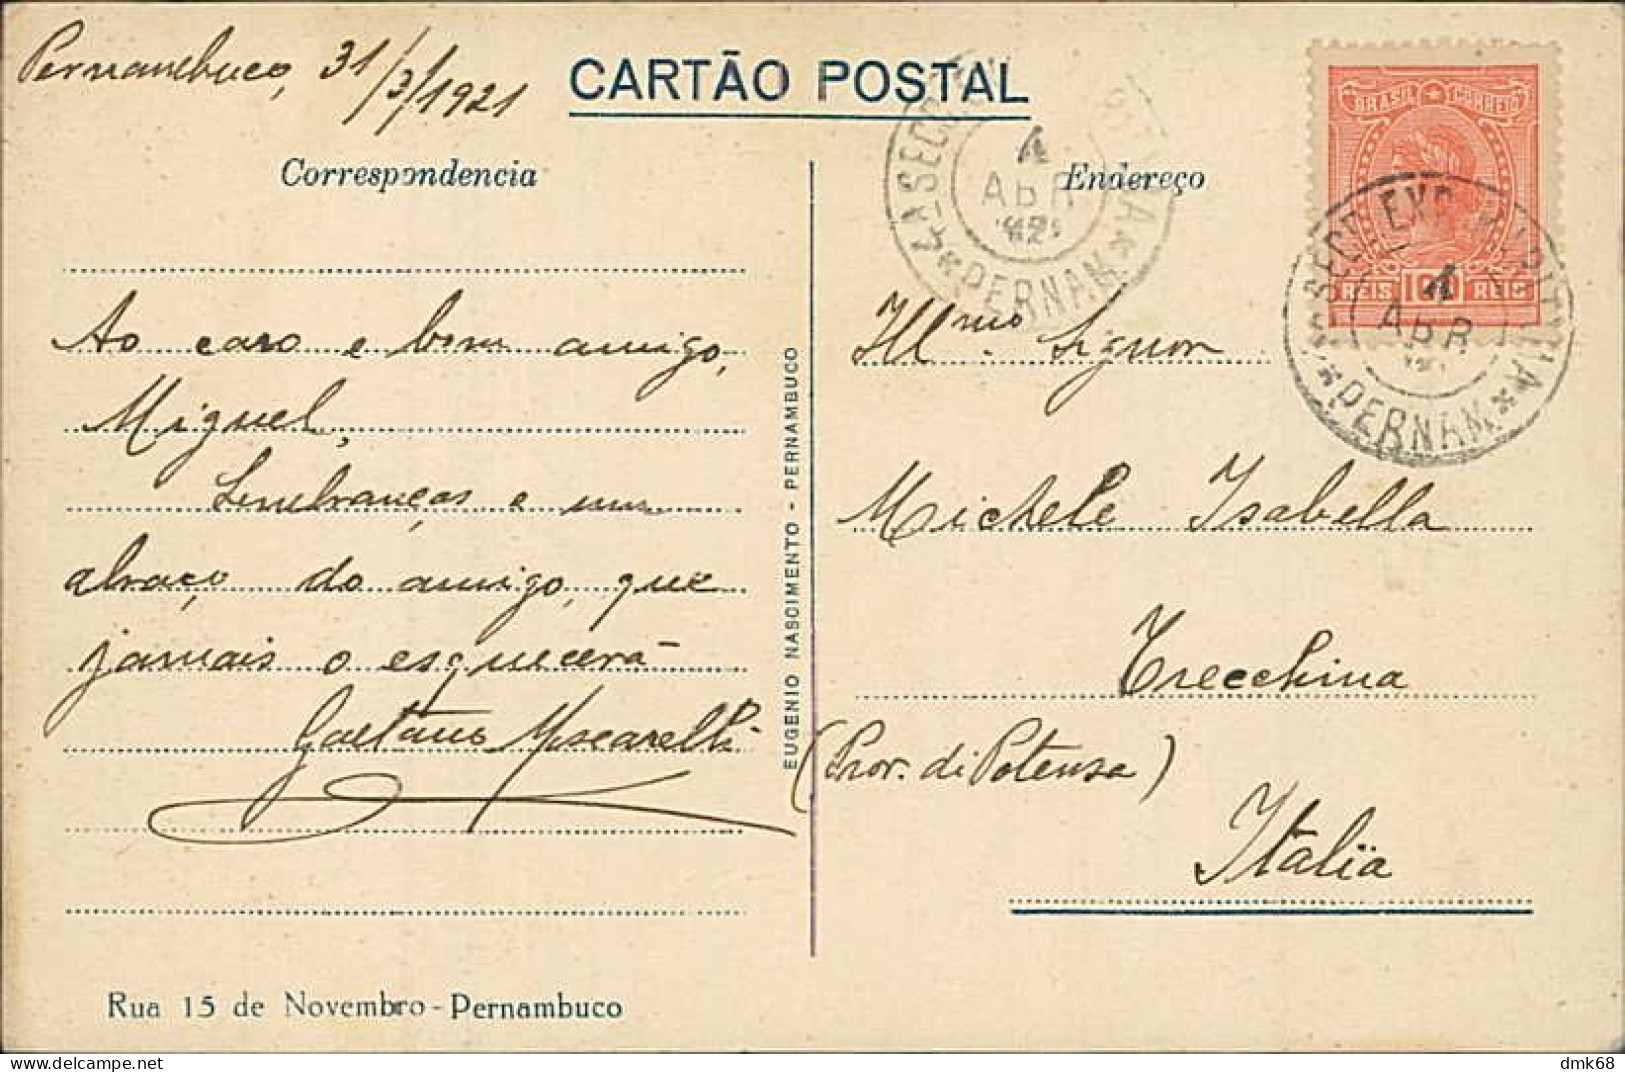 Pernambuco, 31/3/1921
CARTÃO POSTAL
Correspondencia
Endereço
BRASIL CORREIO
REIS 100 REIS
4ª SECÇ
4
ABR
PERNAM
4
ABR
PERNAM
Ao caro e bom amigo,
Miguel,
Lembranças e um
abraço do amigo, que
jamais o esquecerá
Gaetano Moscarelli
Ill.mo Signor
Michele Isabella
Trecchina
(Prov. di Potensa)
Italia
EUGENIO NASCIMENTO - PERNAMBUCO
Rua 15 de Novembro - Pernambuco
delcampe.net
dmk68